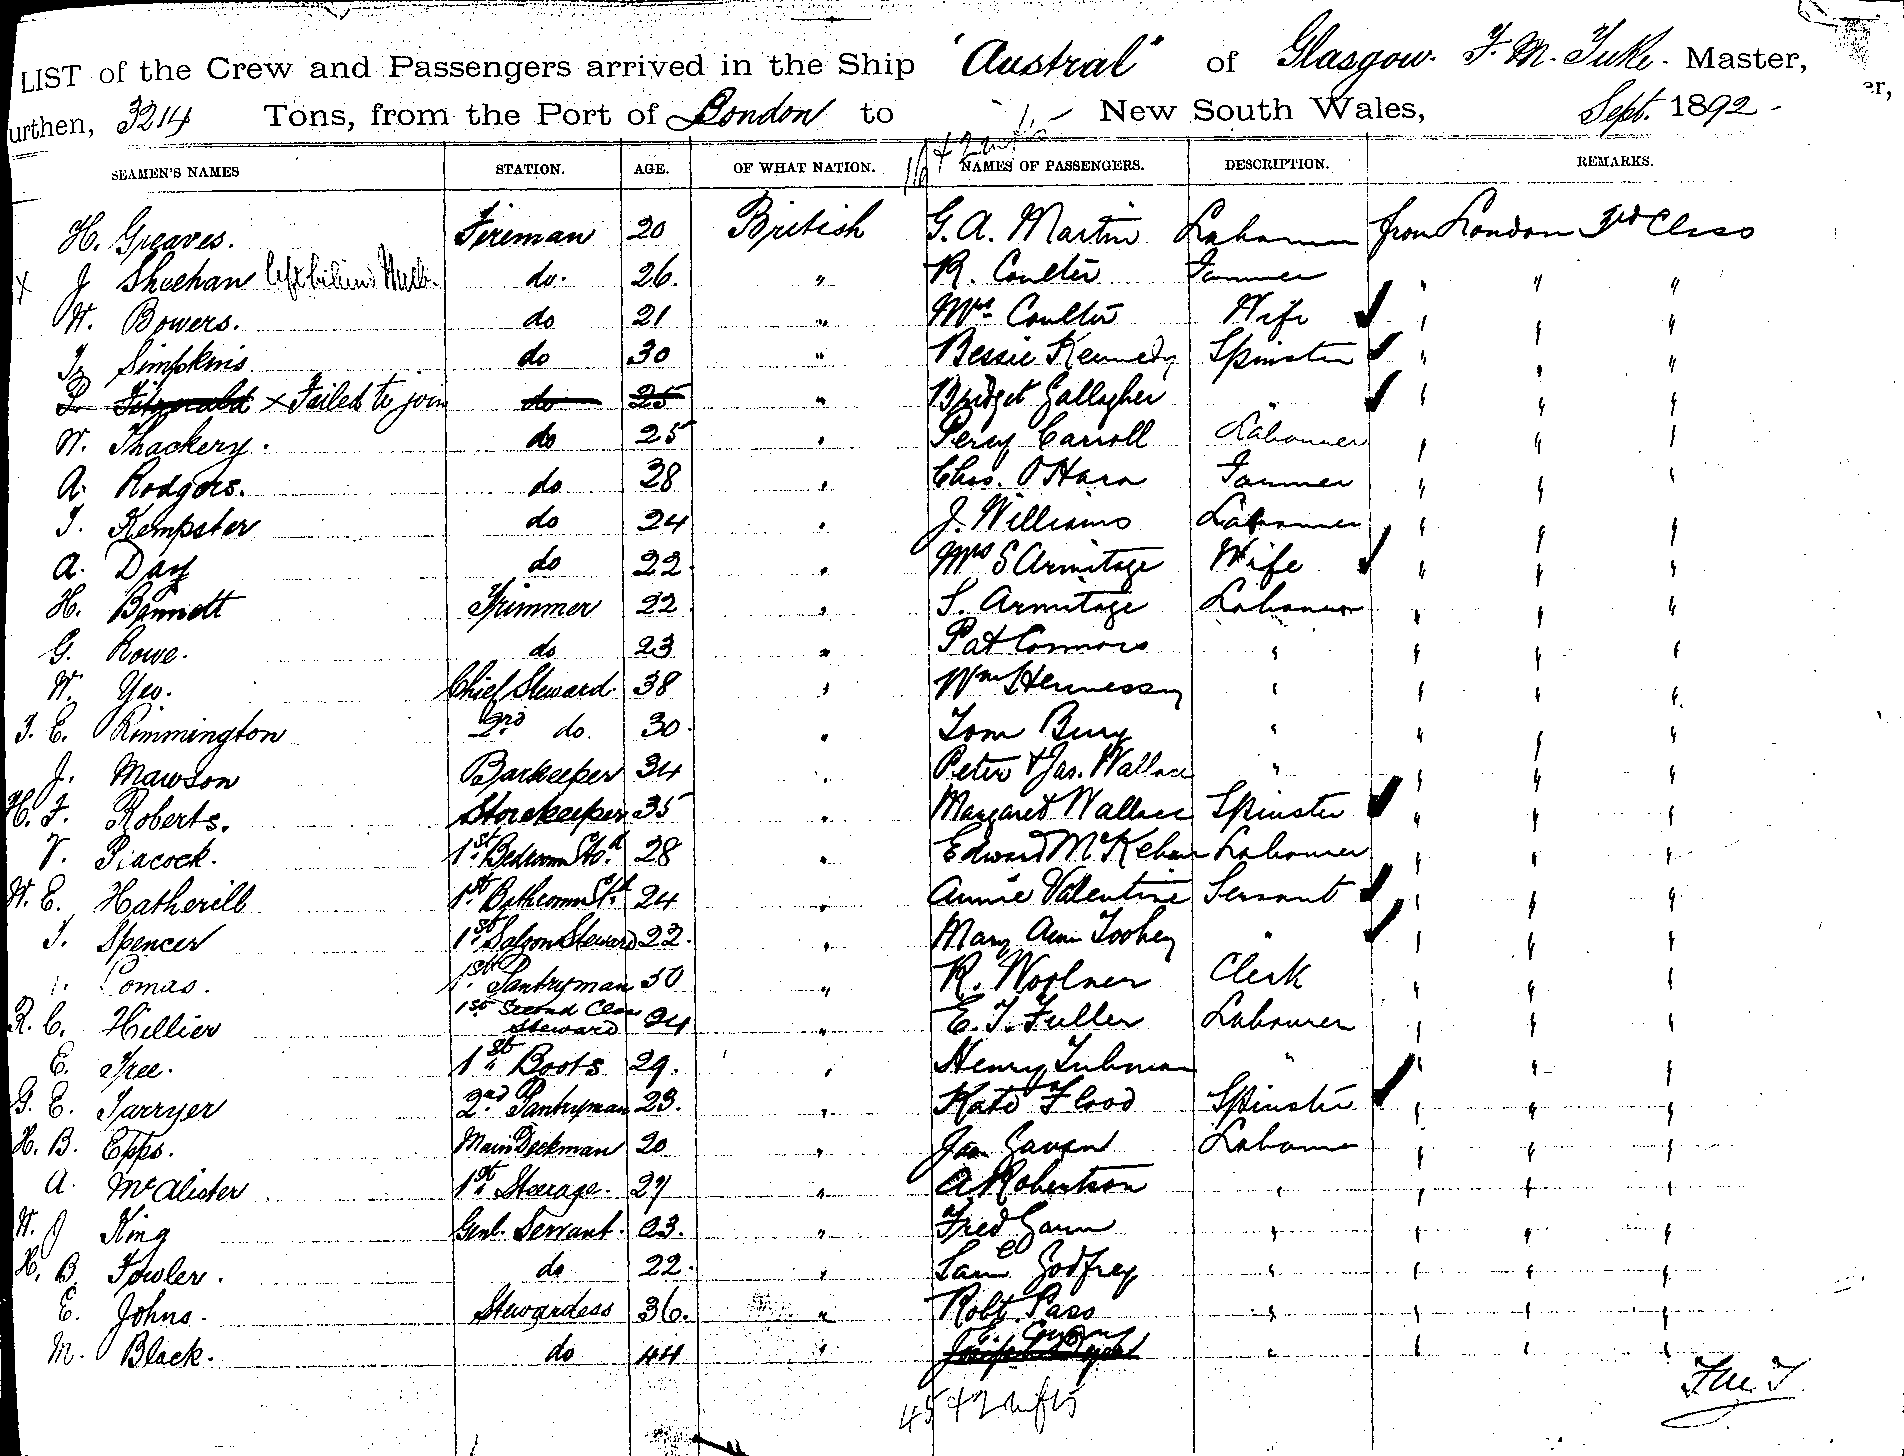 LIST of the Crew and Passengers arrived in the Ship "Austral" of Glasgow. F. M. Tuke. Master,
urthen, 3214 Tons, from the Port of London to New South Wales, Sept. 1892 -
SEAMEN'S NAMES STATION. AGE. OF WHAT NATION. NAMES OF PASSENGERS. DESCRIPTION. REMARKS.
H. Greaves. Fireman 20 British G. A. Martin Labourer from London 3rd Class
x J Sheehan left behind Melb. do. 26. " R. Coulter Farmer " " "
W. Bowers. do 21 " Mrs. Coulter Wife " " "
Simpkins do 30 " Bessie Kennedy Spinster " " "
Fitzgerald x Failed to join do 25 " Bridget Gallagher " " " "
W. Thackery. do 25 " Percy Carroll Labourer " " "
A. Rodgers. do 28 " Chas. O'Hara Farmer " " "
T. Kempster do 24 " J. Williams Labourer " " "
A. Day do 22. " Mrs S Armitage Wife " " "
H. Bennett Trimmer 22 " S. Armitage Labourer " " "
G. Rowe. do 23 " Pat Connors " " " "
W. Yeo. Chief Steward 38 " Wm Hennessy " " " "
T. E. Rimmington 2nd do. 30. " Tom Bury " " " "
J. Mawson Barkeeper 34 " Peter & Jas. Wallace " " " "
H. F. Roberts. Storekeeper 35 " Margaret Wallace Spinster " " "
V. Peacock. 1st Bedroom Std. 28 " Edward McKehan Labourer " " "
W. E. Hatherill 1st Bathroom Std. 24 " Annie Valentine Servant " " "
T. Spencer 1st Saloon Steward 22. " Mary Ann Toohey " " " "
omas. 1st Pantryman 30 " R. Woolner Clerk " " "
R. C. Hillier 1st Second Class Steward 24 " E. T. Fuller Labourer " " "
E. Tree. 1st Boots 29. " Henry Tubman " " " "
G. E. Tarryer 2nd Pantryman 23. " Kate Flood Spinster " " "
H. B. Epps. Main Deckman 20 " Jas. Gaven Labourer " " "
A. McAlister 1st Steerage. 27 " A. Robertson " " " "
W. J King Genl. Servant. 23. " Fred Gann " " " "
H. B. Fowler. do 22. " Sam Godfrey " " " "
E. Johns. Stewardess 36. " Robt. Pass " " " "
M. Black. do 44 " " " " "